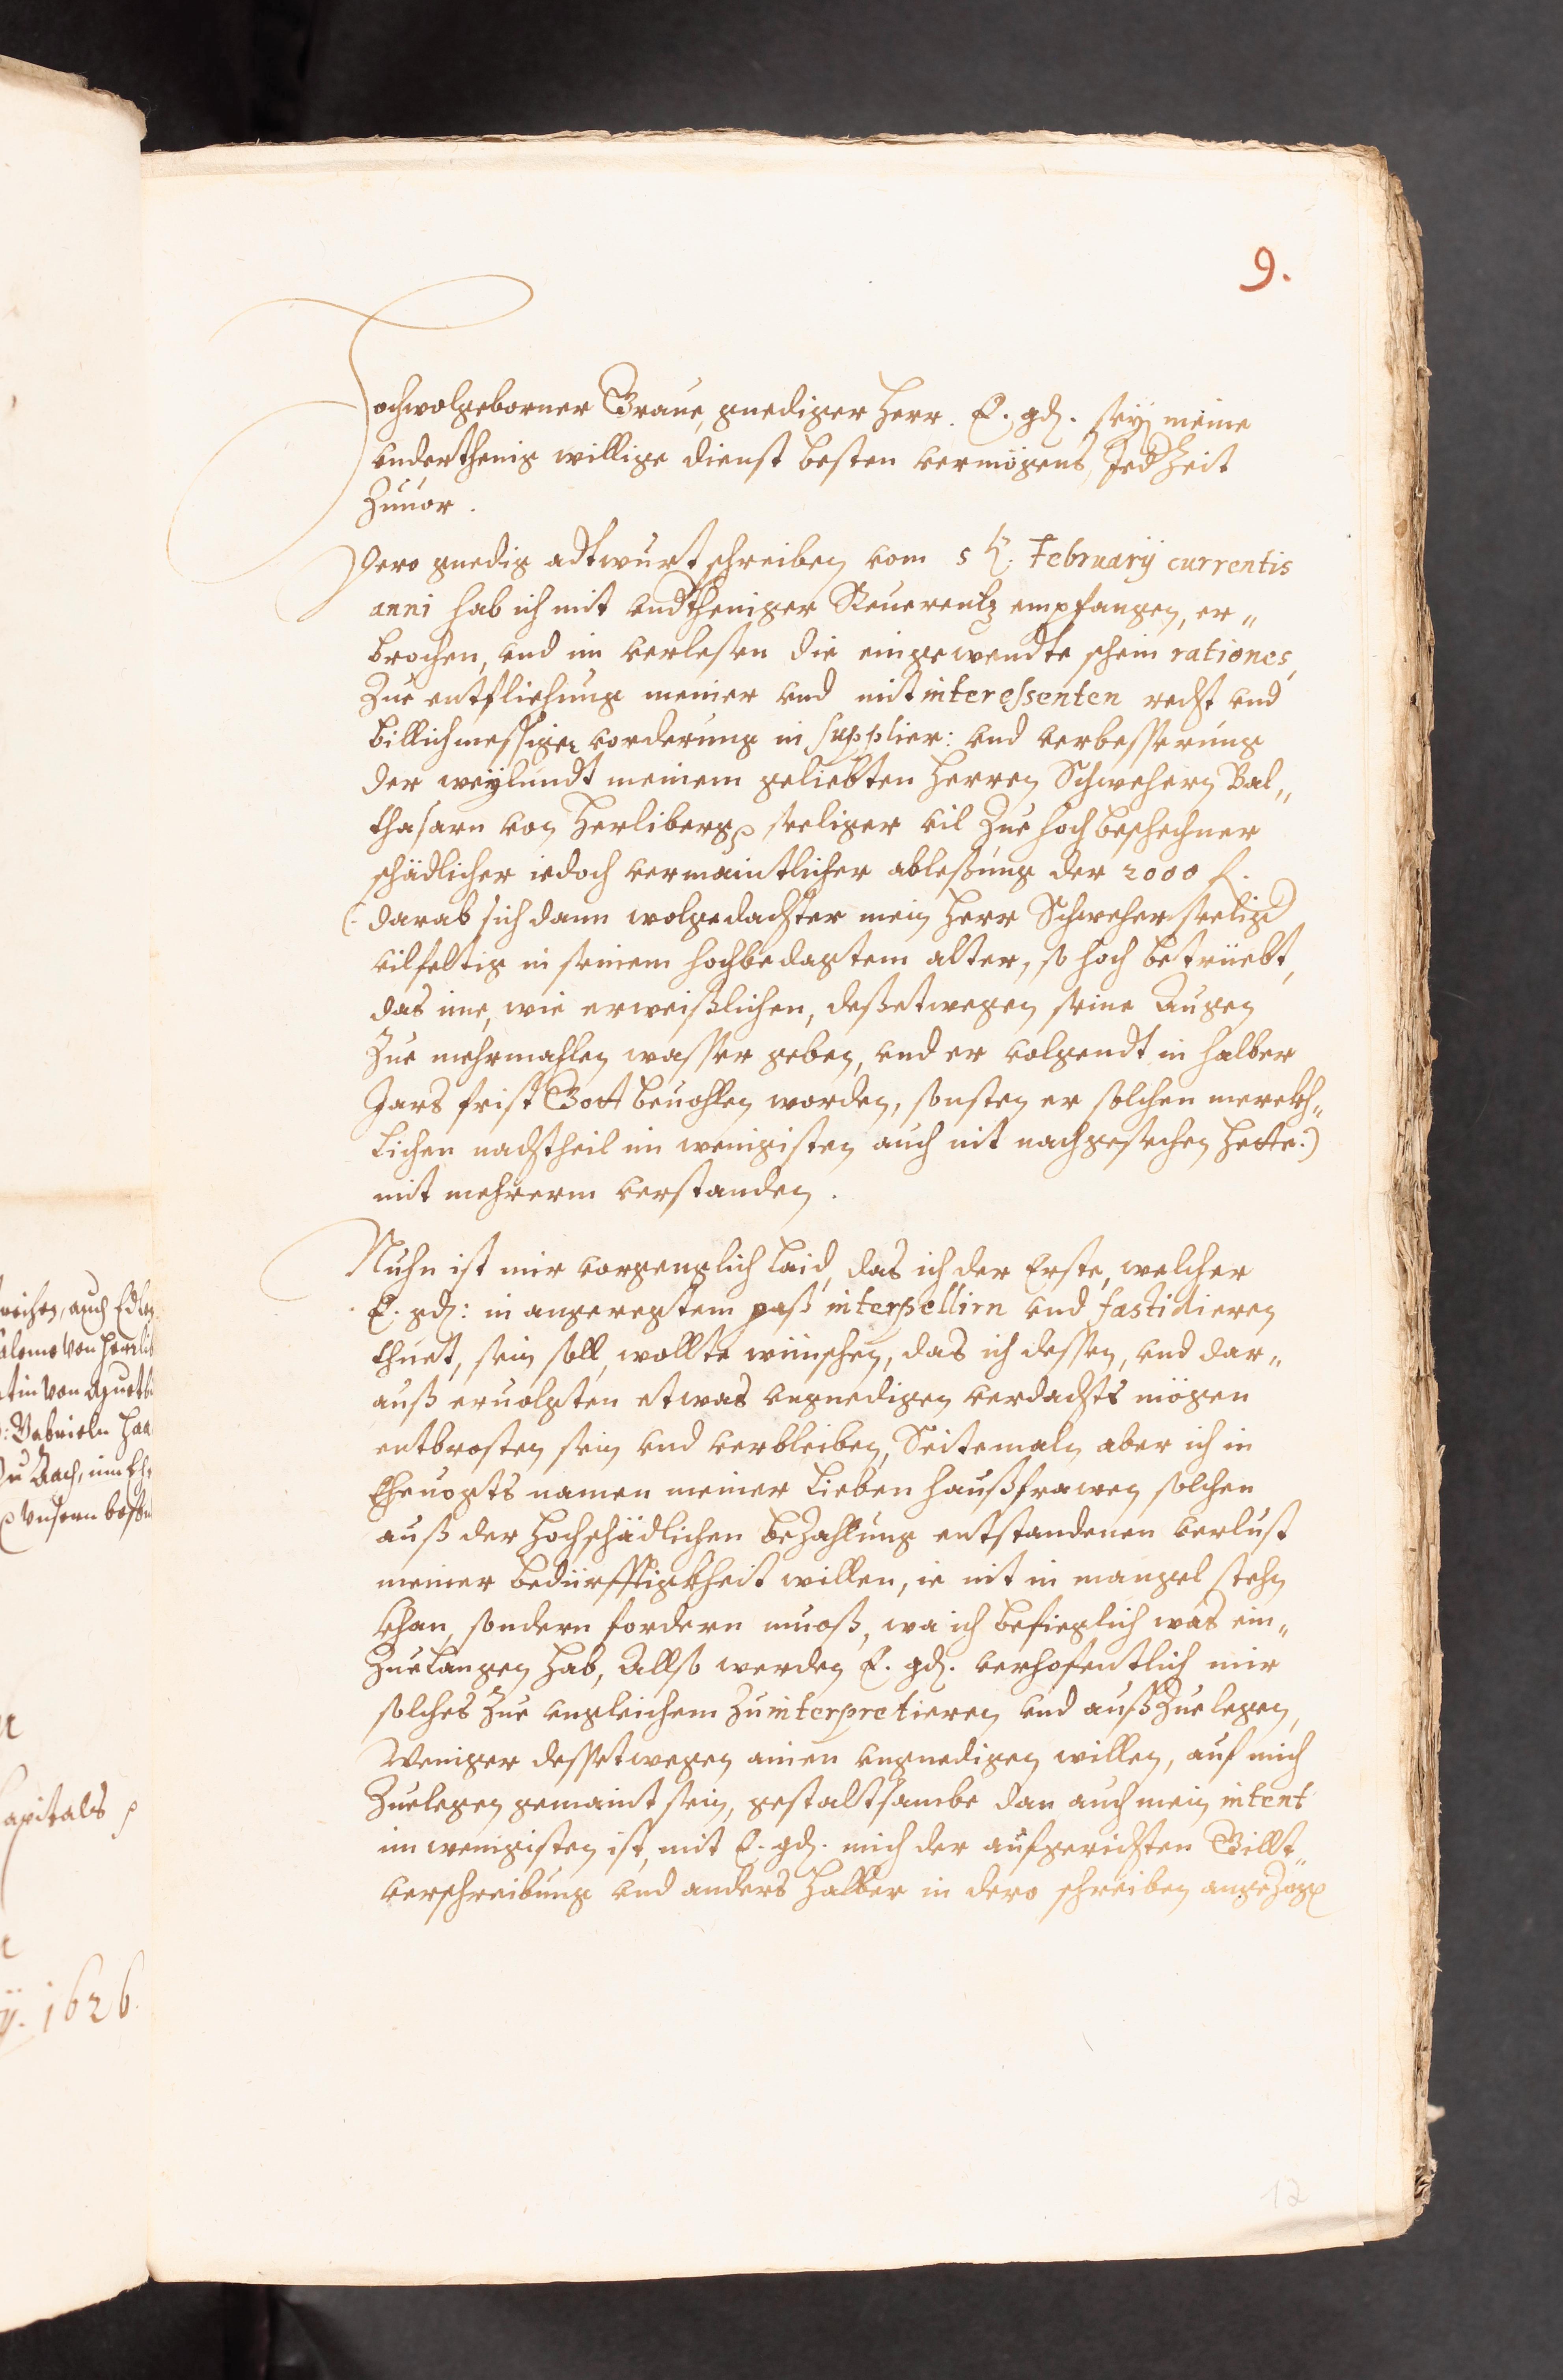 9.
Hochwolgeborner Graue, gnediger Herr. E. gd. seÿ meine
vnderthenig willige dienst besten vermögens Jed Zeit
Zuuor.
Dero gnedig adtwurt schreiben vom 5t. Februarÿ currentis
anni hab ich mit vndtheniger Reuerentz empfangen, er„
brochen, vnd im verlesen die eingewendte schein rationes,
Zue entfliehung meiner vnd mitinteressenten recht vnd
billichmessiger vorderung in supplier: vnd verbesserung
der weÿlundt meinem geliebten Herren Schwehern Bal„
thasarn von Herliberg seeliger vil Zue hoch beschechner
schädlicher iedoch vermaintlicher ablesung der 2000 f.
(: darab sich dann wolgedachter mein Herr Schweher seelig
vilfeltig in seinem hochbedagtem alter, so hoch betrüebt,
das ime, wie erweißlichen, deßetwegen seine Augen
Zue mehrmahlen wasser geben, vnd er volgendt in halber
Jars frist Gott beuohlen worden, sonsten er solchen merckh„
lichen nachtheil im wenigisten auch nit nachgesechen hette:)
mit mehrerm verstanden.
Nuhn ist mir vorgenglich laid, das ich der Erste, welcher
E. gd: in angeregtem paß interpellirn vnd fastidieren
thuet, sein soll, wollte wünschen, das ich dessen, vnd dar„
auß eruolgten etwas vngnedigen verdachts mögen
entbrosten sein vnd verbleiben, Seitemaln aber ich in
Eheuogts namen meiner lieben haußfrawen solchen
auß der hochschädlichen beZahlung entstandenen verlust
meiner bedürfftigkheit willen, ie nit in mangel stehn
khan, sondern fordern muoß, wa ich befieglich was ein„
Zuelangen hab, Allso werden E. gd. verhofentlich mir
solches Zue vngleichem Zuinterpretieren vnd außZuelegen,
Weniger dessetwegen ainen vngnedigen willen, auf mich
Zuelegen gemaint sein, gestaltsambe dan auch mein intent
im wenigisten ist, mit E. gd. mich der aufgerichten Gillt„
verschreibung vnd anders halber in dero schreiben angeZog
12
1626.